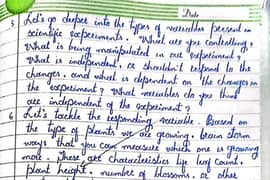 Date
5 Let's go deeper into the types of variables present in
scientific experiments. "What are you controlling,
What is being manipulated in our experiment?
What is independent, or shouldn't respond to the
changes, and what is dependent on the changes in
the experiment? What variables do you think
are independent of the experiment?
6 Let's tackle the responding variable. Based on
the type of plants we are growing, brain storm
ways that you can measure which one is growing
more. These are characteristics like leaf count,
plant height, number of blossoms, or other